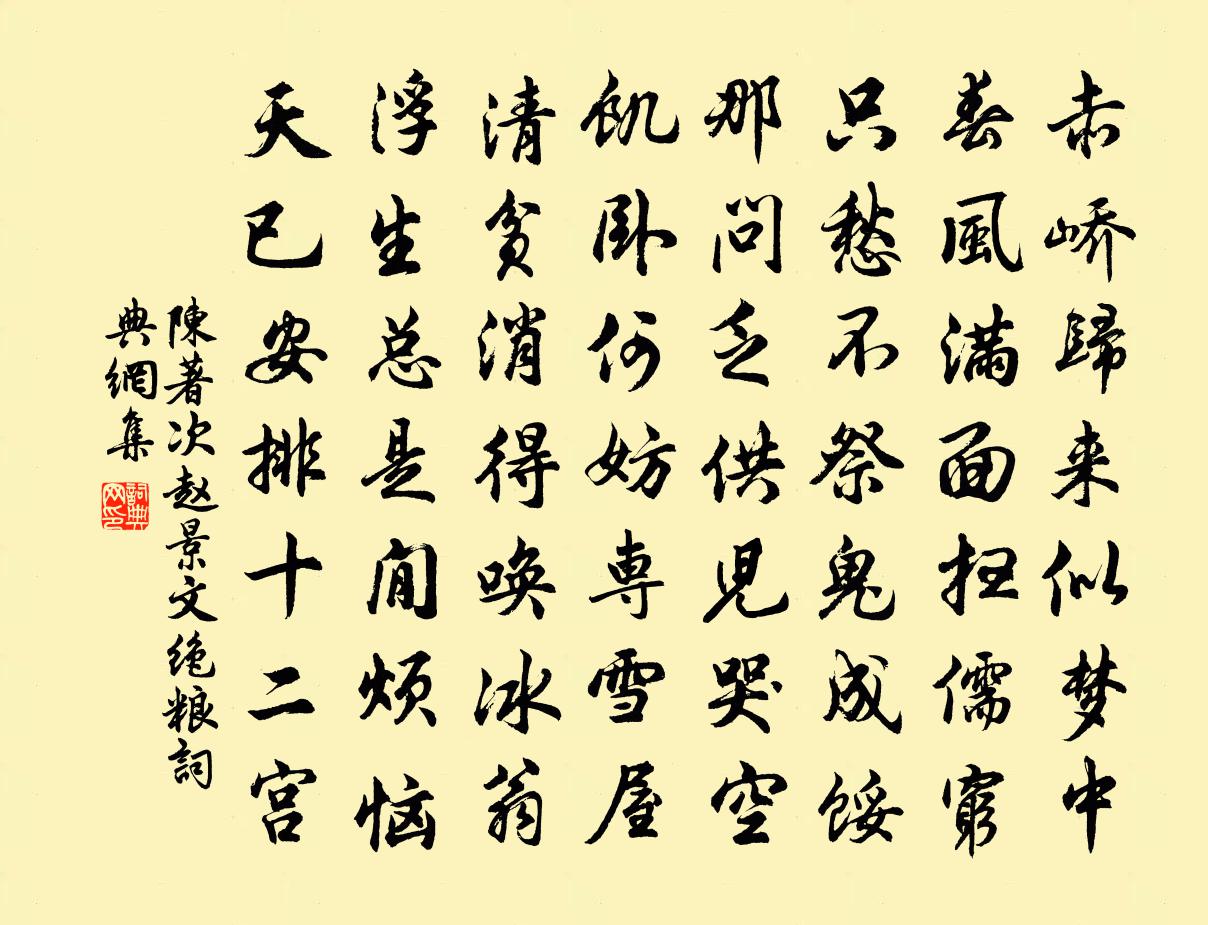 赤峤歸来似梦中
春風满面扫儒窮
只愁不祭鬼成馁
那问乏供児哭空
飢卧何妨専雪屋
清貧消得唤冰翁
浮生总是闲烦恼
天已安排十二宫
陳著次赵景文绝粮詞
典網集
詞典网印